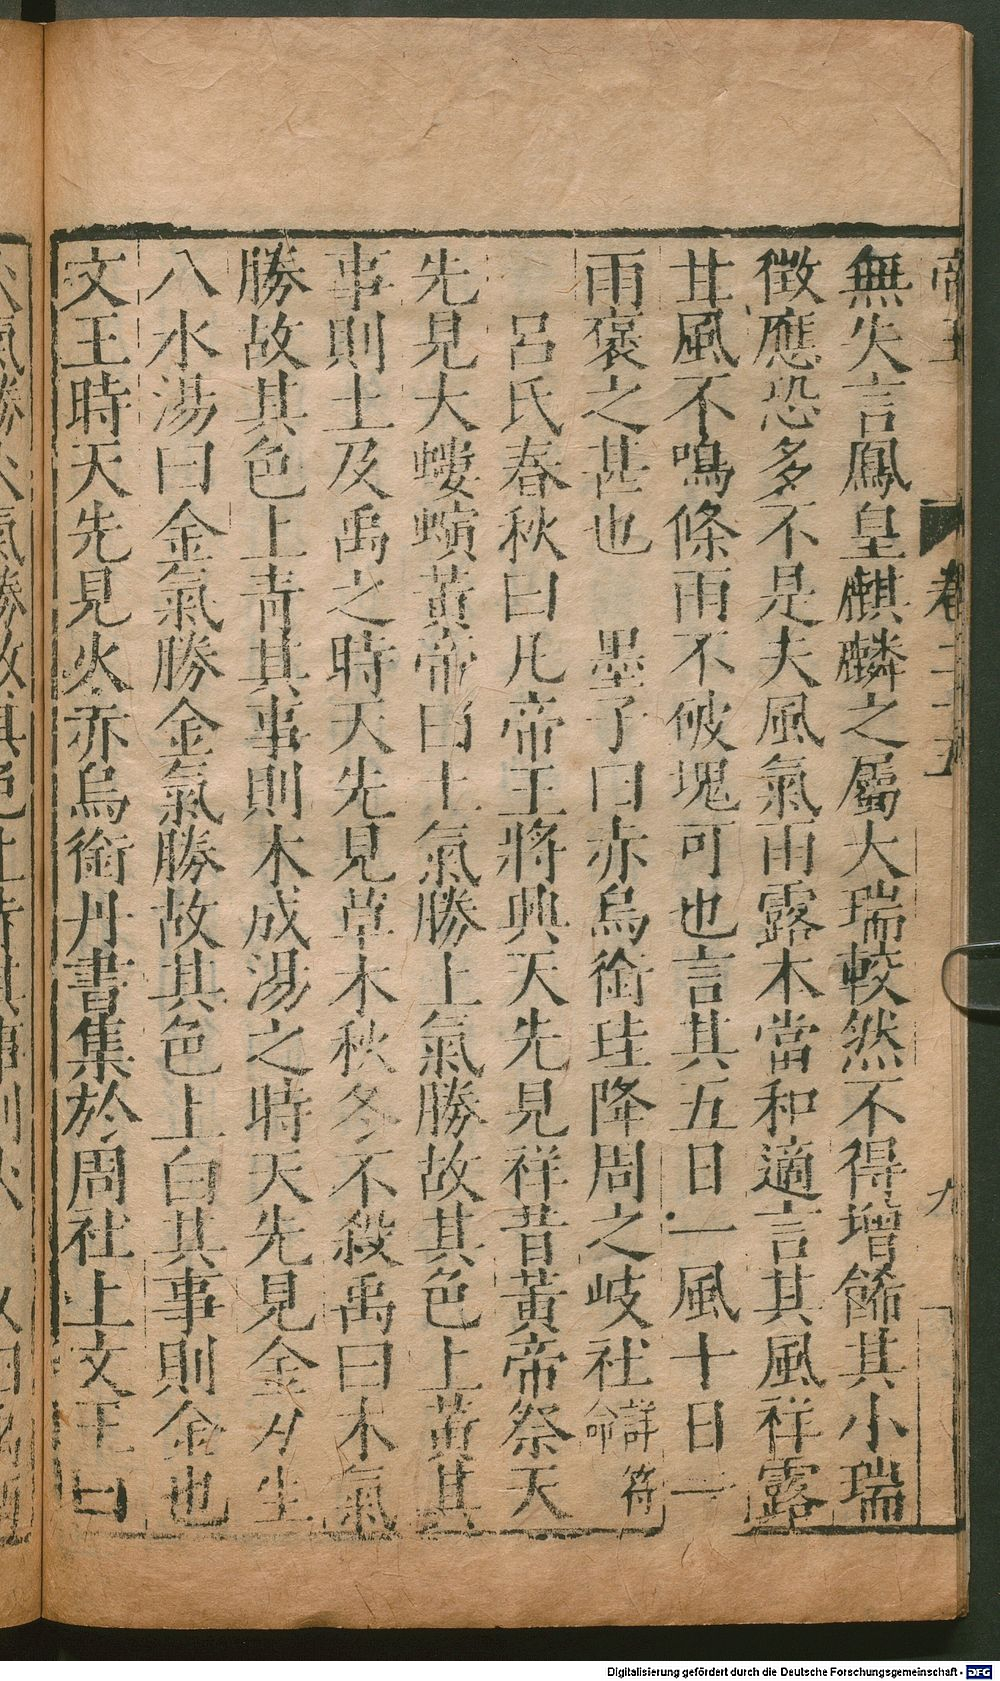 無失言鳳皇麒麟之屬大瑞較然不得增飾其小瑞
徴應恐多不是夫風氣雨露本當和適言其風祥露
甘風不鳴條雨不破塊可也言其五日一風十日一
雨褒之甚也　墨子曰赤烏銜珪降周之岐社詳符命
呂氏春秋曰凡帝王將興天先見祥昔黃帝祭天
先見大螻螾黃帝曰土氣勝土氣勝故其色上黃其
事則土及禹之時天先見草木秋冬不殺禹曰木氣
勝故其色上青其事則木成湯之時天先見金刀生
八水湯曰金氣勝金氣勝故其色上白其事則金也
文王時天先見火赤烏銜丹書集於周社上文王曰
帝王　卷二十五　九
火氣勝火氣勝故其色上赤其事則火
Digitalisierung gefördert durch die Deutsche Forschungsgemeinschaft - DFG